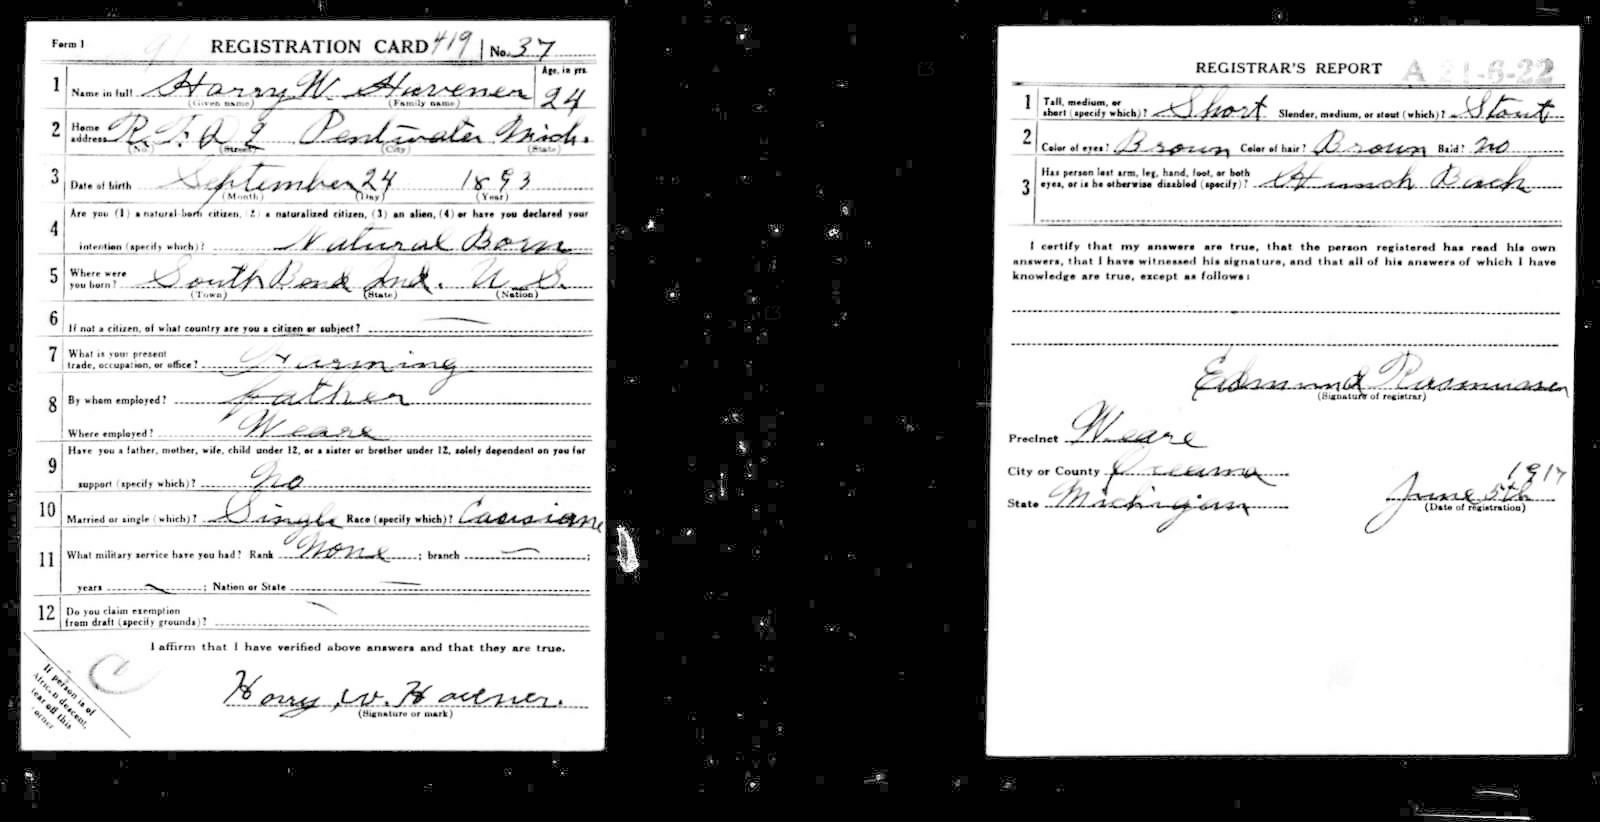 Form 1 REGISTRATION CARD 419 No. 37
1 Name in full Harry W. Havener Age, in yrs. 24
(Given name) (Family name)
2 Home address R.F.D 2 Pentwater Mich.
(No.) (Street) (City) (State)
3 Date of birth September 24 1893
(Month) (Day) (Year)
4 Are you (1) a natural-born citizen, (2) a naturalized citizen, (3) an alien, (4) or have you declared your
intention (specify which)? Natural Born
5 Where were you born? South Bend Ind. U.S.
(Town) (State) (Nation)
6 If not a citizen, of what country are you a citizen or subject? —
7 What is your present
trade, occupation, or office? Farming
8 By whom employed? father
Where employed? Weare
9 Have you a father, mother, wife, child under 12, or a sister or brother under 12, solely dependent on you for
support (specify which)? No
10 Married or single (which)? Single Race (specify which)? Caucsiane
11 What military service have you had? Rank None ; branch — ;
years — ; Nation or State —
12 Do you claim exemption
from draft (specify grounds)? —
I affirm that I have verified above answers and that they are true.
Harry W. Havener.
(Signature or mark)
If person is of
African descent,
tear off this
corner
REGISTRAR'S REPORT A 21-6-22
1 Tall, medium, or
short (specify which)? Short Slender, medium, or stout (which)? Stout
2 Color of eyes? Brown Color of hair? Brown Bald? No
3 Has person lost arm, leg, hand, foot, or both
eyes, or is he otherwise disabled (specify)? Hunch Back
I certify that my answers are true, that the person registered has read his own
answers, that I have witnessed his signature, and that all of his answers of which I have
knowledge are true, except as follows:
Edmund Rasmussen
(Signature of registrar)
Precinct Weare
City or County Oceana
State Michigan
June 5th 1917
(Date of registration)